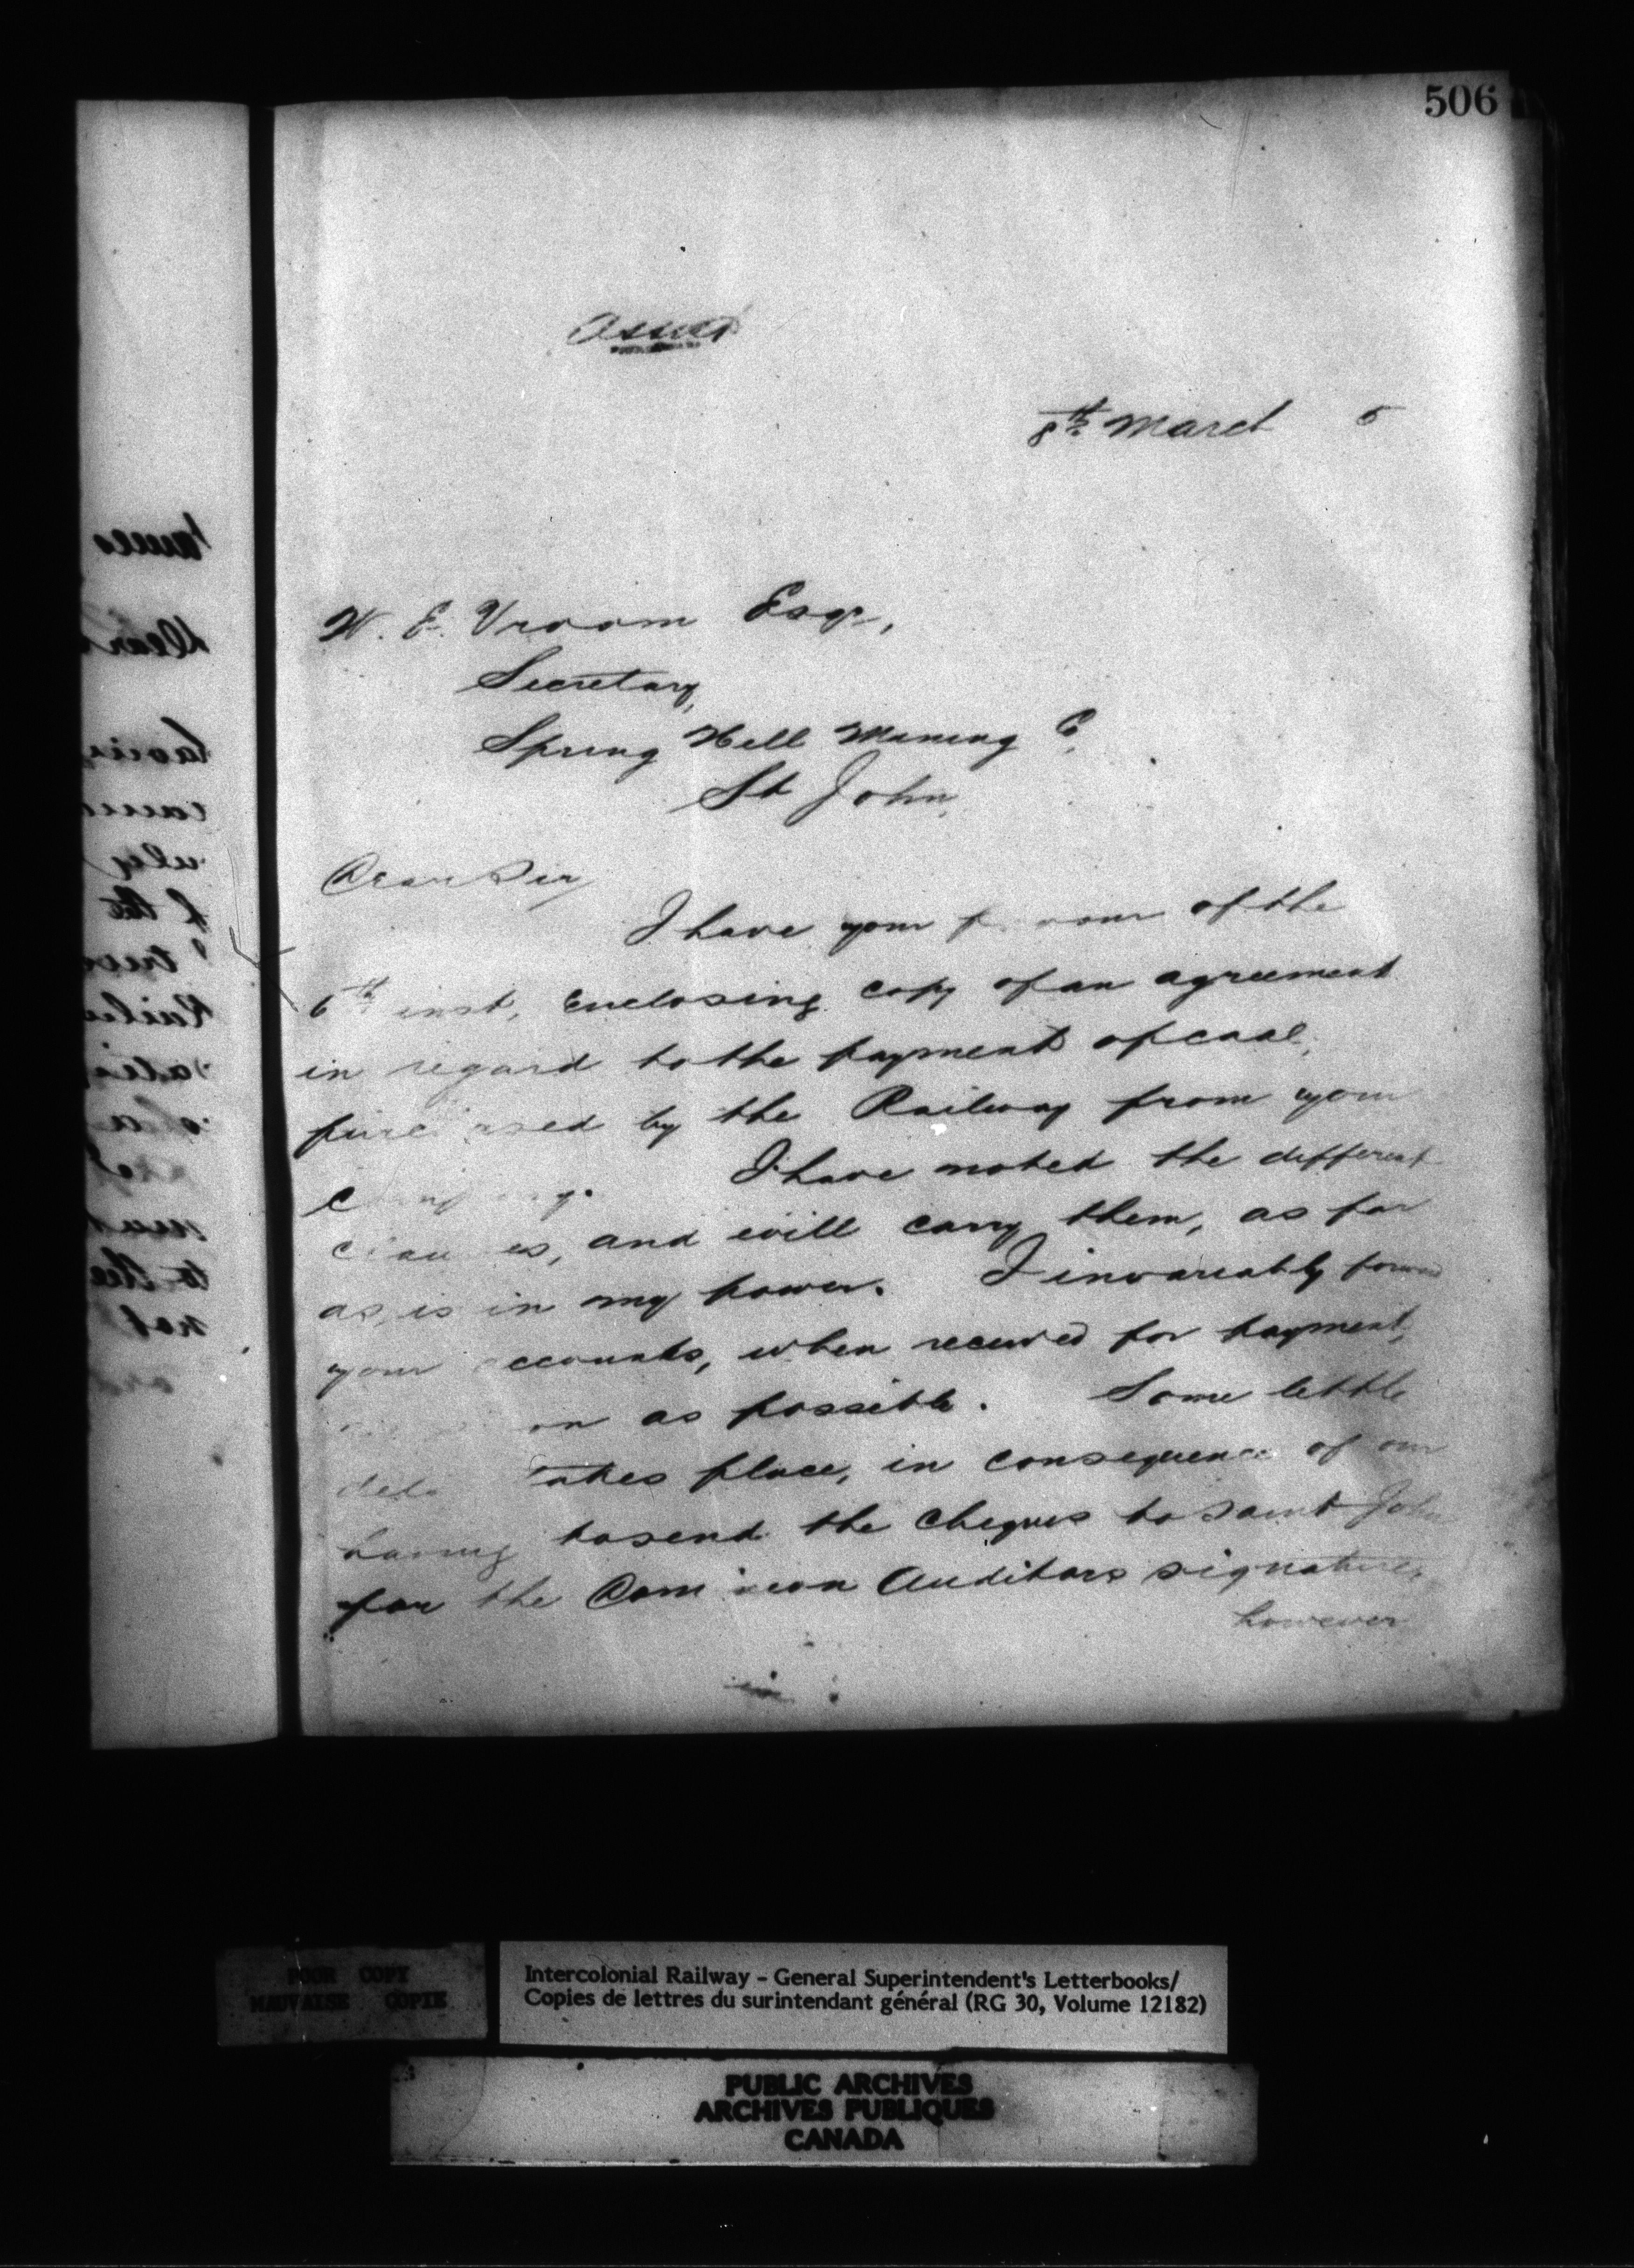 506
8th March 5
W. E. Vroom Esqr,
Secretary,
Spring Hill Mining Co,
St John,
Dear Sir,
I have your favour of the
6th inst, Enclosing copy of an agreement
in regard to the payment of coal,
purchased by the Railway from your
Company. I have noted the different
clauses, and will carry them, as far
as, is in my power. I invariably forward
your accounts, when received for payment,
on as possible. Some little
delay takes place, in consequence of our
having to send the Cheques to Saint John
for the Dominion Auditors signature,
however
POOR COPY
MAUVAISE COPIE
Intercolonial Railway - General Superintendent's Letterbooks/
Copies de lettres du surintendant général (RG 30, Volume 12182)
PUBLIC ARCHIVES
ARCHIVES PUBLIQUES
CANADA